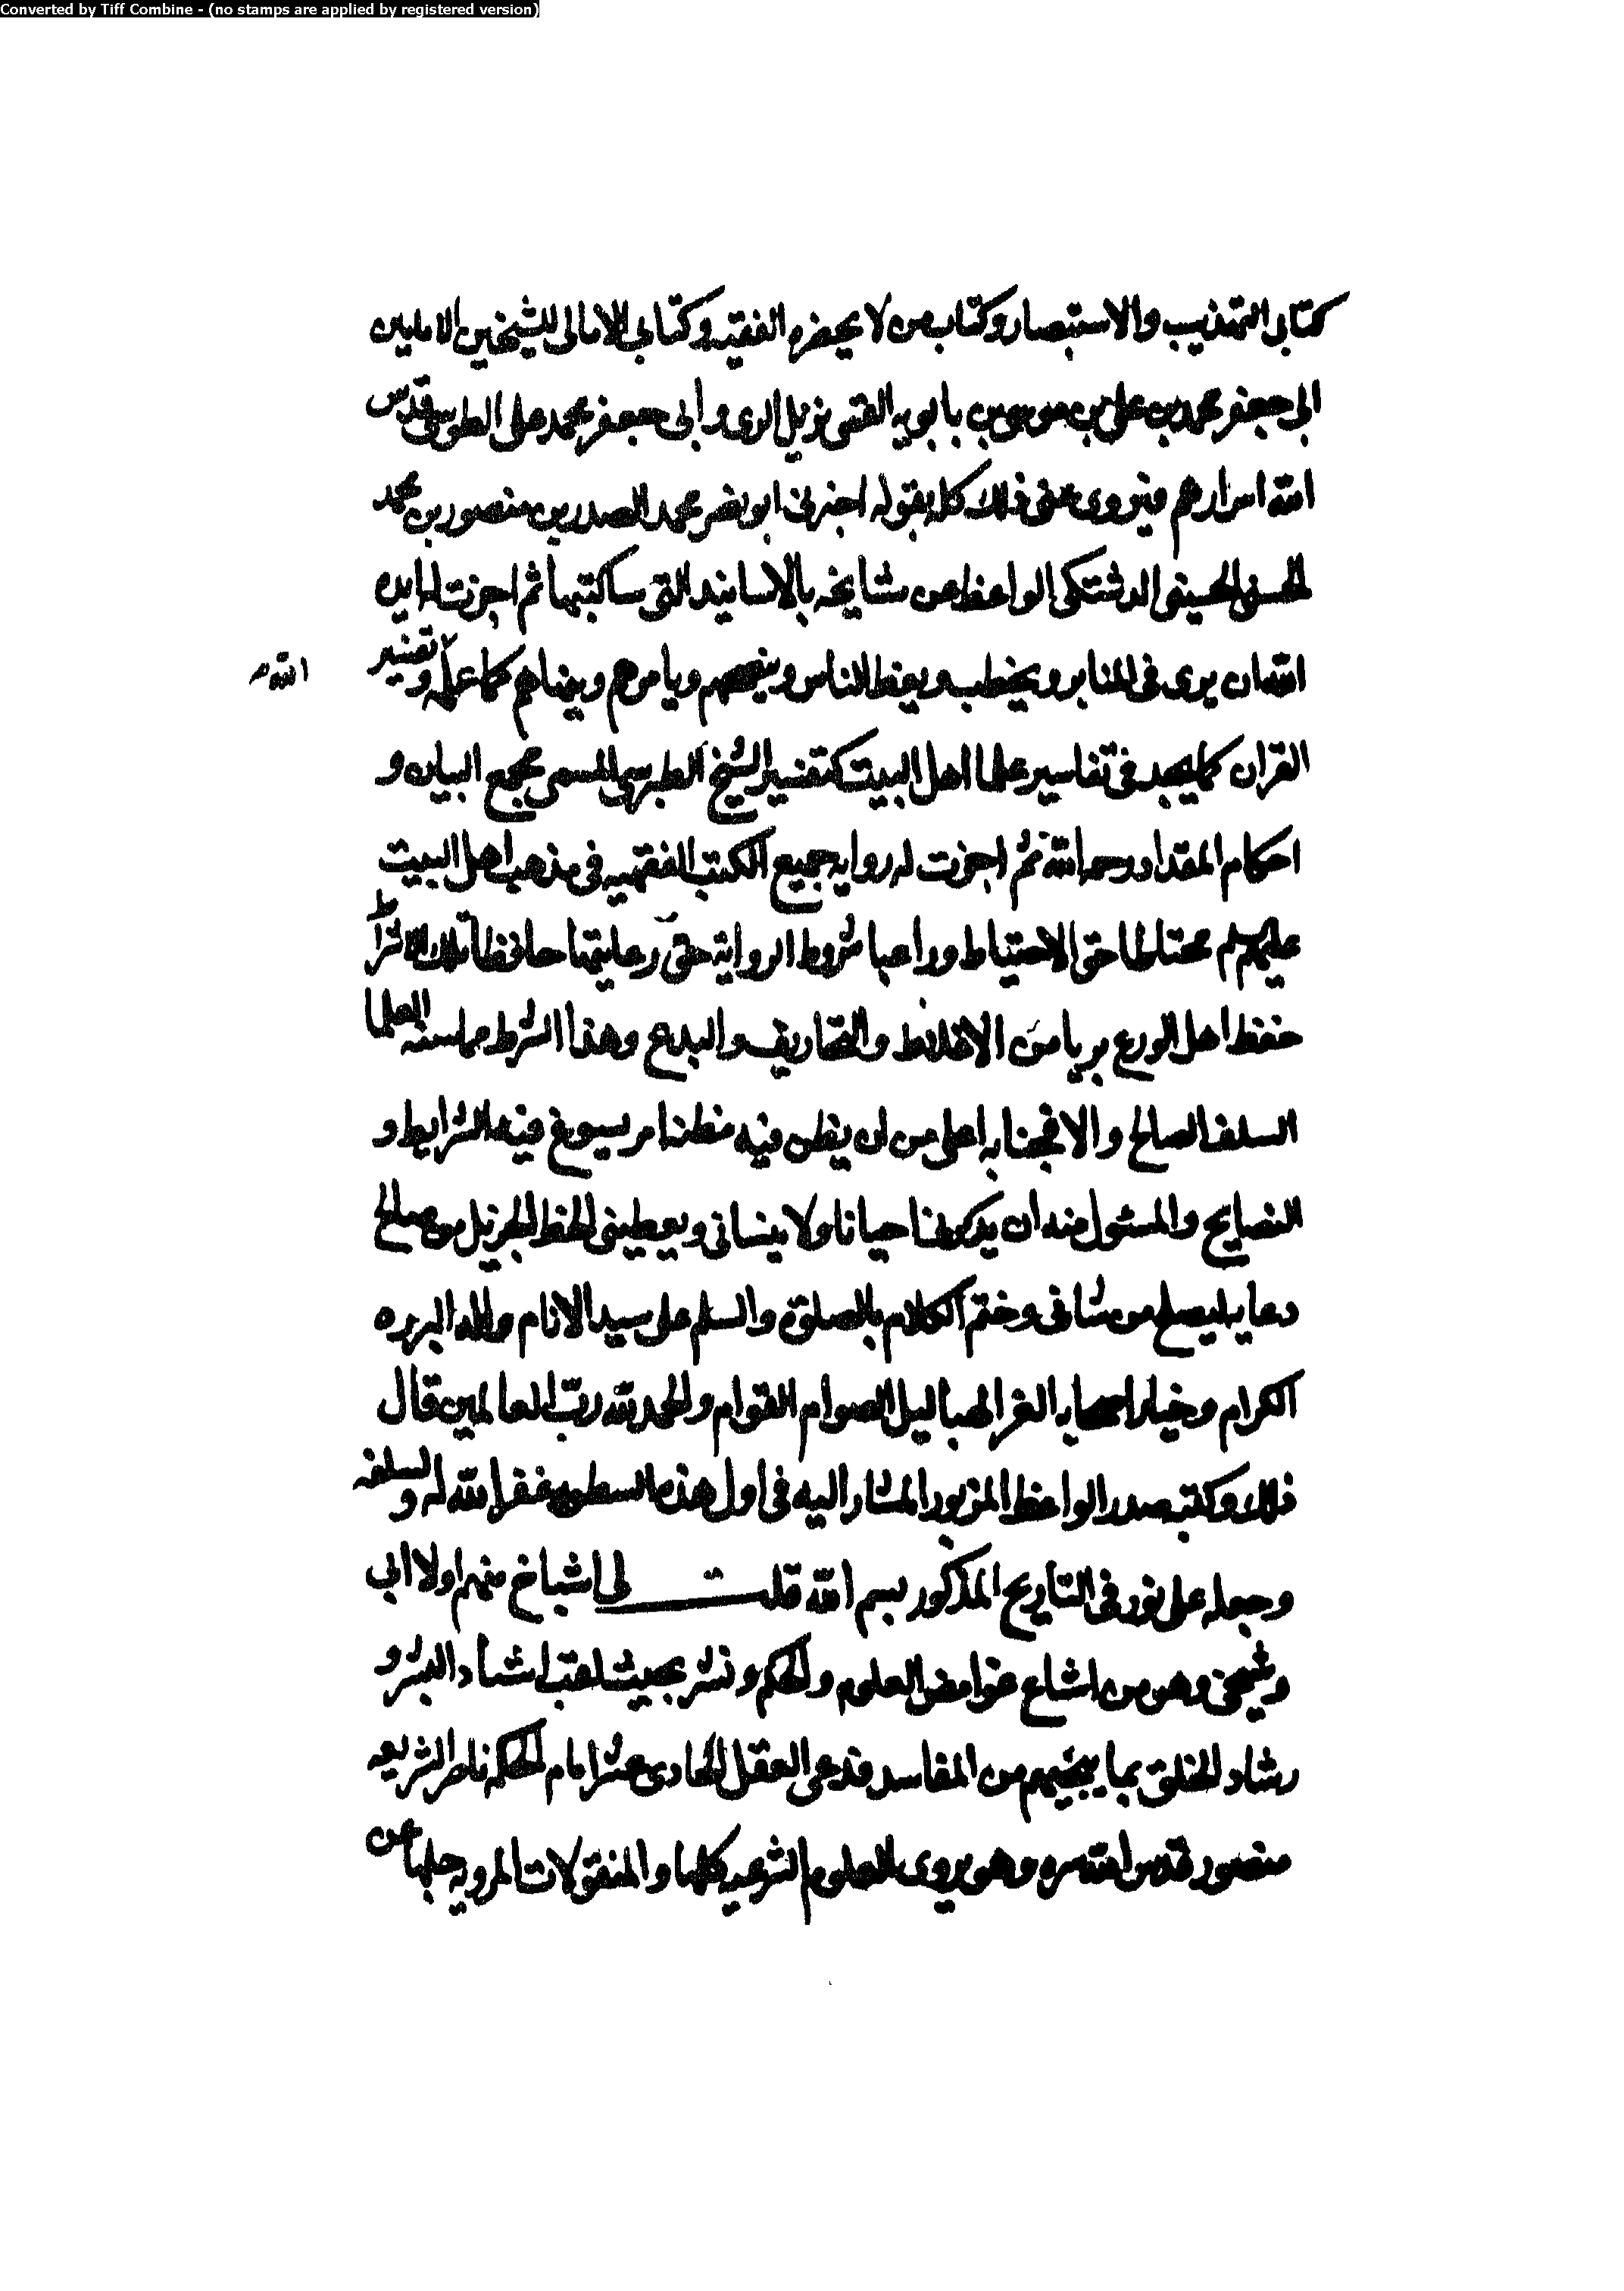 Converted by Tiff Combine - (no stamps are applied by registered version)
كتابى التهذيب والاستبصار وكتاب من لا يحضره الفقيه وكتابي الامالى للشيخين الامامين
ابى جعفر محمد بن على بن موسى بن بابويه القمى نزيل الرى وابى جعفر محمد على الطوسى قدس
الله اسرارهم فيروى عنى ذلك كله بقوله اخبرنى ابو نصر محمد الصدر بن منصور بن محمد
الحسنى الحسينى الدشتكى الواعظ عن مشايخه بالاسانيد التى ساكتبها ثم اجزت له ايده
الله ان يرى فى المنابر ويخطب ويعظ الناس وينصحهم ويامرهم وينهاهم كما علمه وتفسير
الله
القران كما يجد فى تفاسير علما اهل البيت كتفسير الشيخ الطبرسى المسمى بمجمع البيان و
احكام المقداد رحمه الله ثم اجزت له رواية جميع الكتب الفقهيه فى مذهب اهل البيت
عليهم سلم محتاطا حق الاحتياط وراعيا شروط الرواية حق رعايتها حافظا تلك
حفظ اهل الورع بريا من الاغلاط والتحاريف والبدع وهذا الشرط مما سنه العلما
السلف الصالح والا فجنابه اعلى من ان يظن فيه امر يسوغ فيه الشرايط و
النصايح والمسئول منه ان يذكرنا احيانا ولا ينسانى ويعطينى الحظ الجزيل من صالح
دعايه ليصلح من شانى وختم الكلام بالصلوة والسلم على سيد الانام واله البرره
الكرام وخيار اصحابه الغر البهاليل الصوام القوام والحمد لله رب العالمين قال
ذلك وكتب صدر الواعظ المزبور المشار اليه فى اول هذه السطور غفر الله له ولسلفه
وجعله على نور فى التاريخ المذكور بسم الله قلت لى اشياخ منهم اولا ابى
وشيخى وهو من اشاع غوامض العلوم والحكم ونشر بحيث لقب استاد البشر و
رشاد الخلق بما ينجيهم من المفاسد فدعى العقل الحادى عشر امام الحكمه ناصر الشريعه
منصور قدس الله سره وهو يروى العلوم الشرعيه كلها والمنقولات المرويه جلها عن